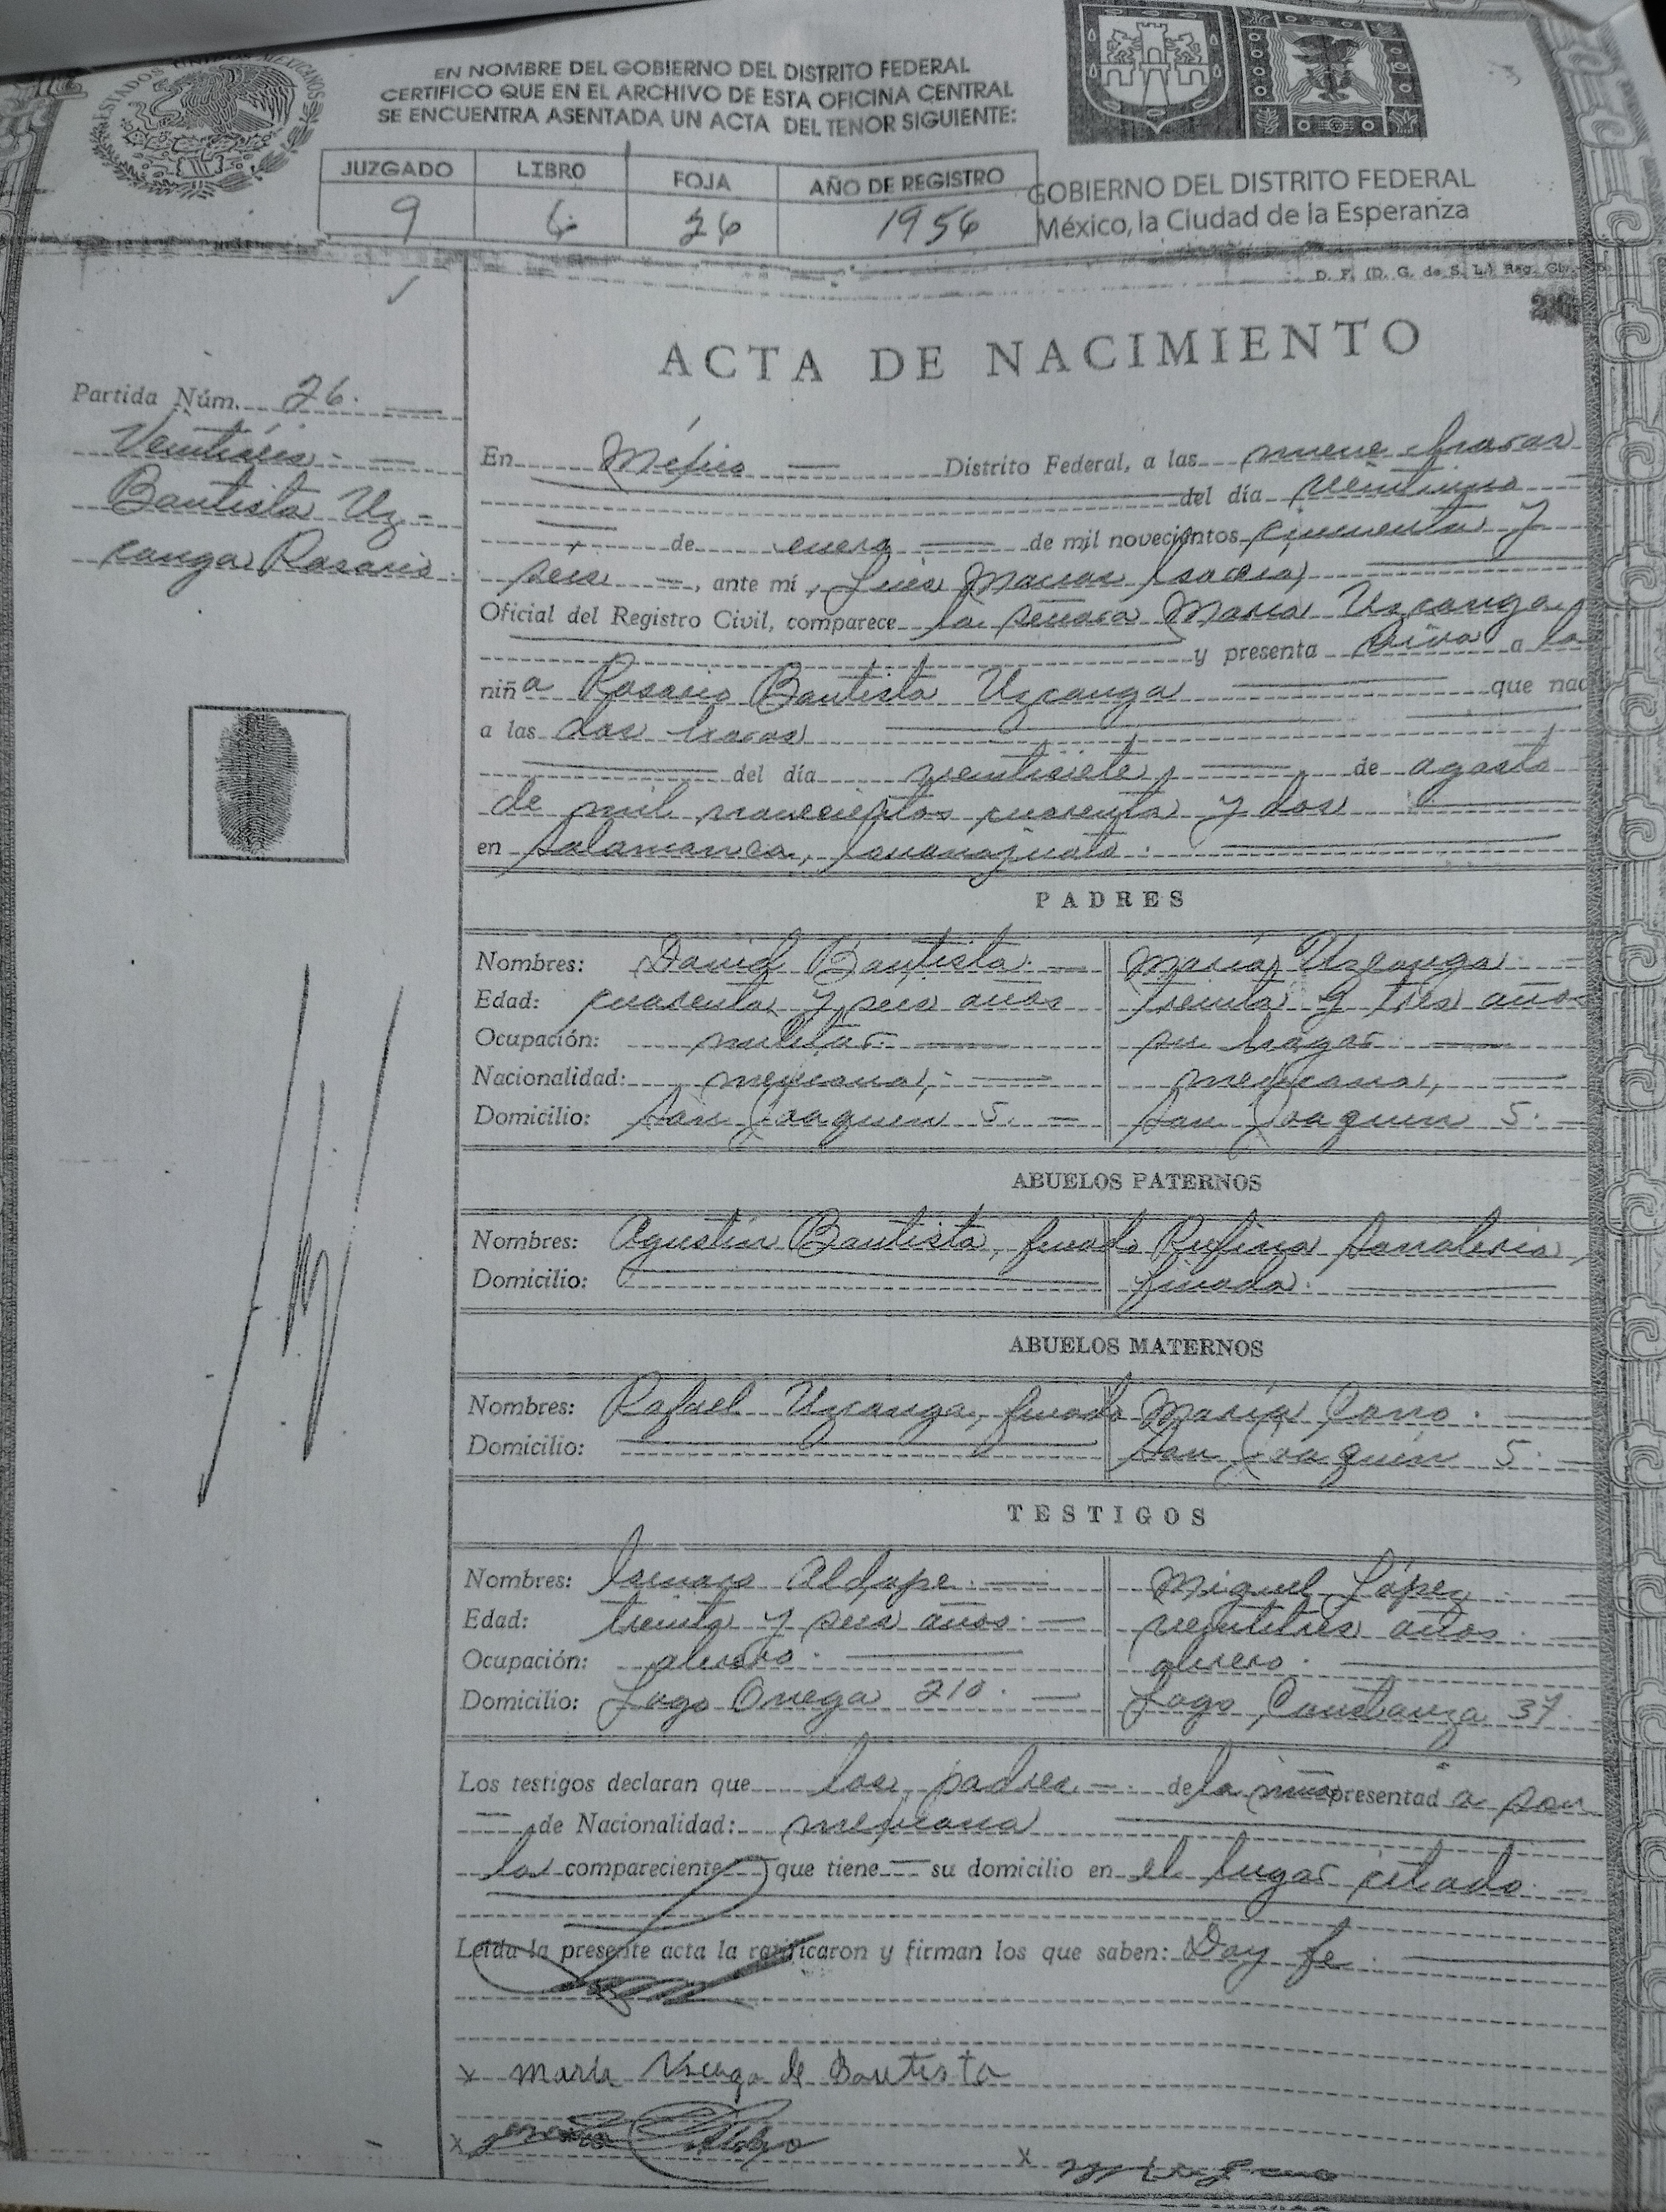 ESTADOS UNIDOS MEXICANOS
EN NOMBRE DEL GOBIERNO DEL DISTRITO FEDERAL
CERTIFICO QUE EN EL ARCHIVO DE ESTA OFICINA CENTRAL
SE ENCUENTRA ASENTADA UN ACTA DEL TENOR SIGUIENTE:
JUZGADO LIBRO FOJA AÑO DE REGISTRO
9 6 26 1956
GOBIERNO DEL DISTRITO FEDERAL
México, la Ciudad de la Esperanza
D. F. (D. G. de S. L.) Reg.
ACTA DE NACIMIENTO
Partida Núm. 26.
Veintiséis
Bautista Uz-
canga Rosario
En México Distrito Federal, a las nueve horas
del día veintiuno
de enero de mil novecientos cincuenta y
seis, ante mí, Luis Macias
Oficial del Registro Civil, comparece la señora María Uzcanga
y presenta viva a la
niña Rosario Bautista Uzcanga que nac
a las dos horas
del día veintisiete, de agosto
de mil novecientos cuarenta y dos
en Salamanca, Guanajuato.
PADRES
Nombres: David Bautista. María Uzcanga.
Edad: cuarenta y seis años treinta y tres años
Ocupación: militar. su hogar.
Nacionalidad: mexicana, mexicana,
Domicilio: San Joaquin 5. San Joaquin 5.
ABUELOS PATERNOS
Nombres: Agustín Bautista, finado Rufina
Domicilio: finada.
ABUELOS MATERNOS
Nombres: Rafael Uzcanga, finado María Cano.
Domicilio: San Joaquin 5.
TESTIGOS
Nombres: Genaro Aldape. Miguel López.
Edad: treinta y seis años. veintitrés años.
Ocupación: obrero. obrero.
Domicilio: Lago Onega 210. Lago Constanza 37.
Los testigos declaran que los padres de la niña presentada son
de Nacionalidad: mexicana
la compareciente que tiene su domicilio en el lugar citado.
Leída la presente acta la ratificaron y firman los que saben: Doy fe.
x María Uzcanga de Bautista
x Genaro
x